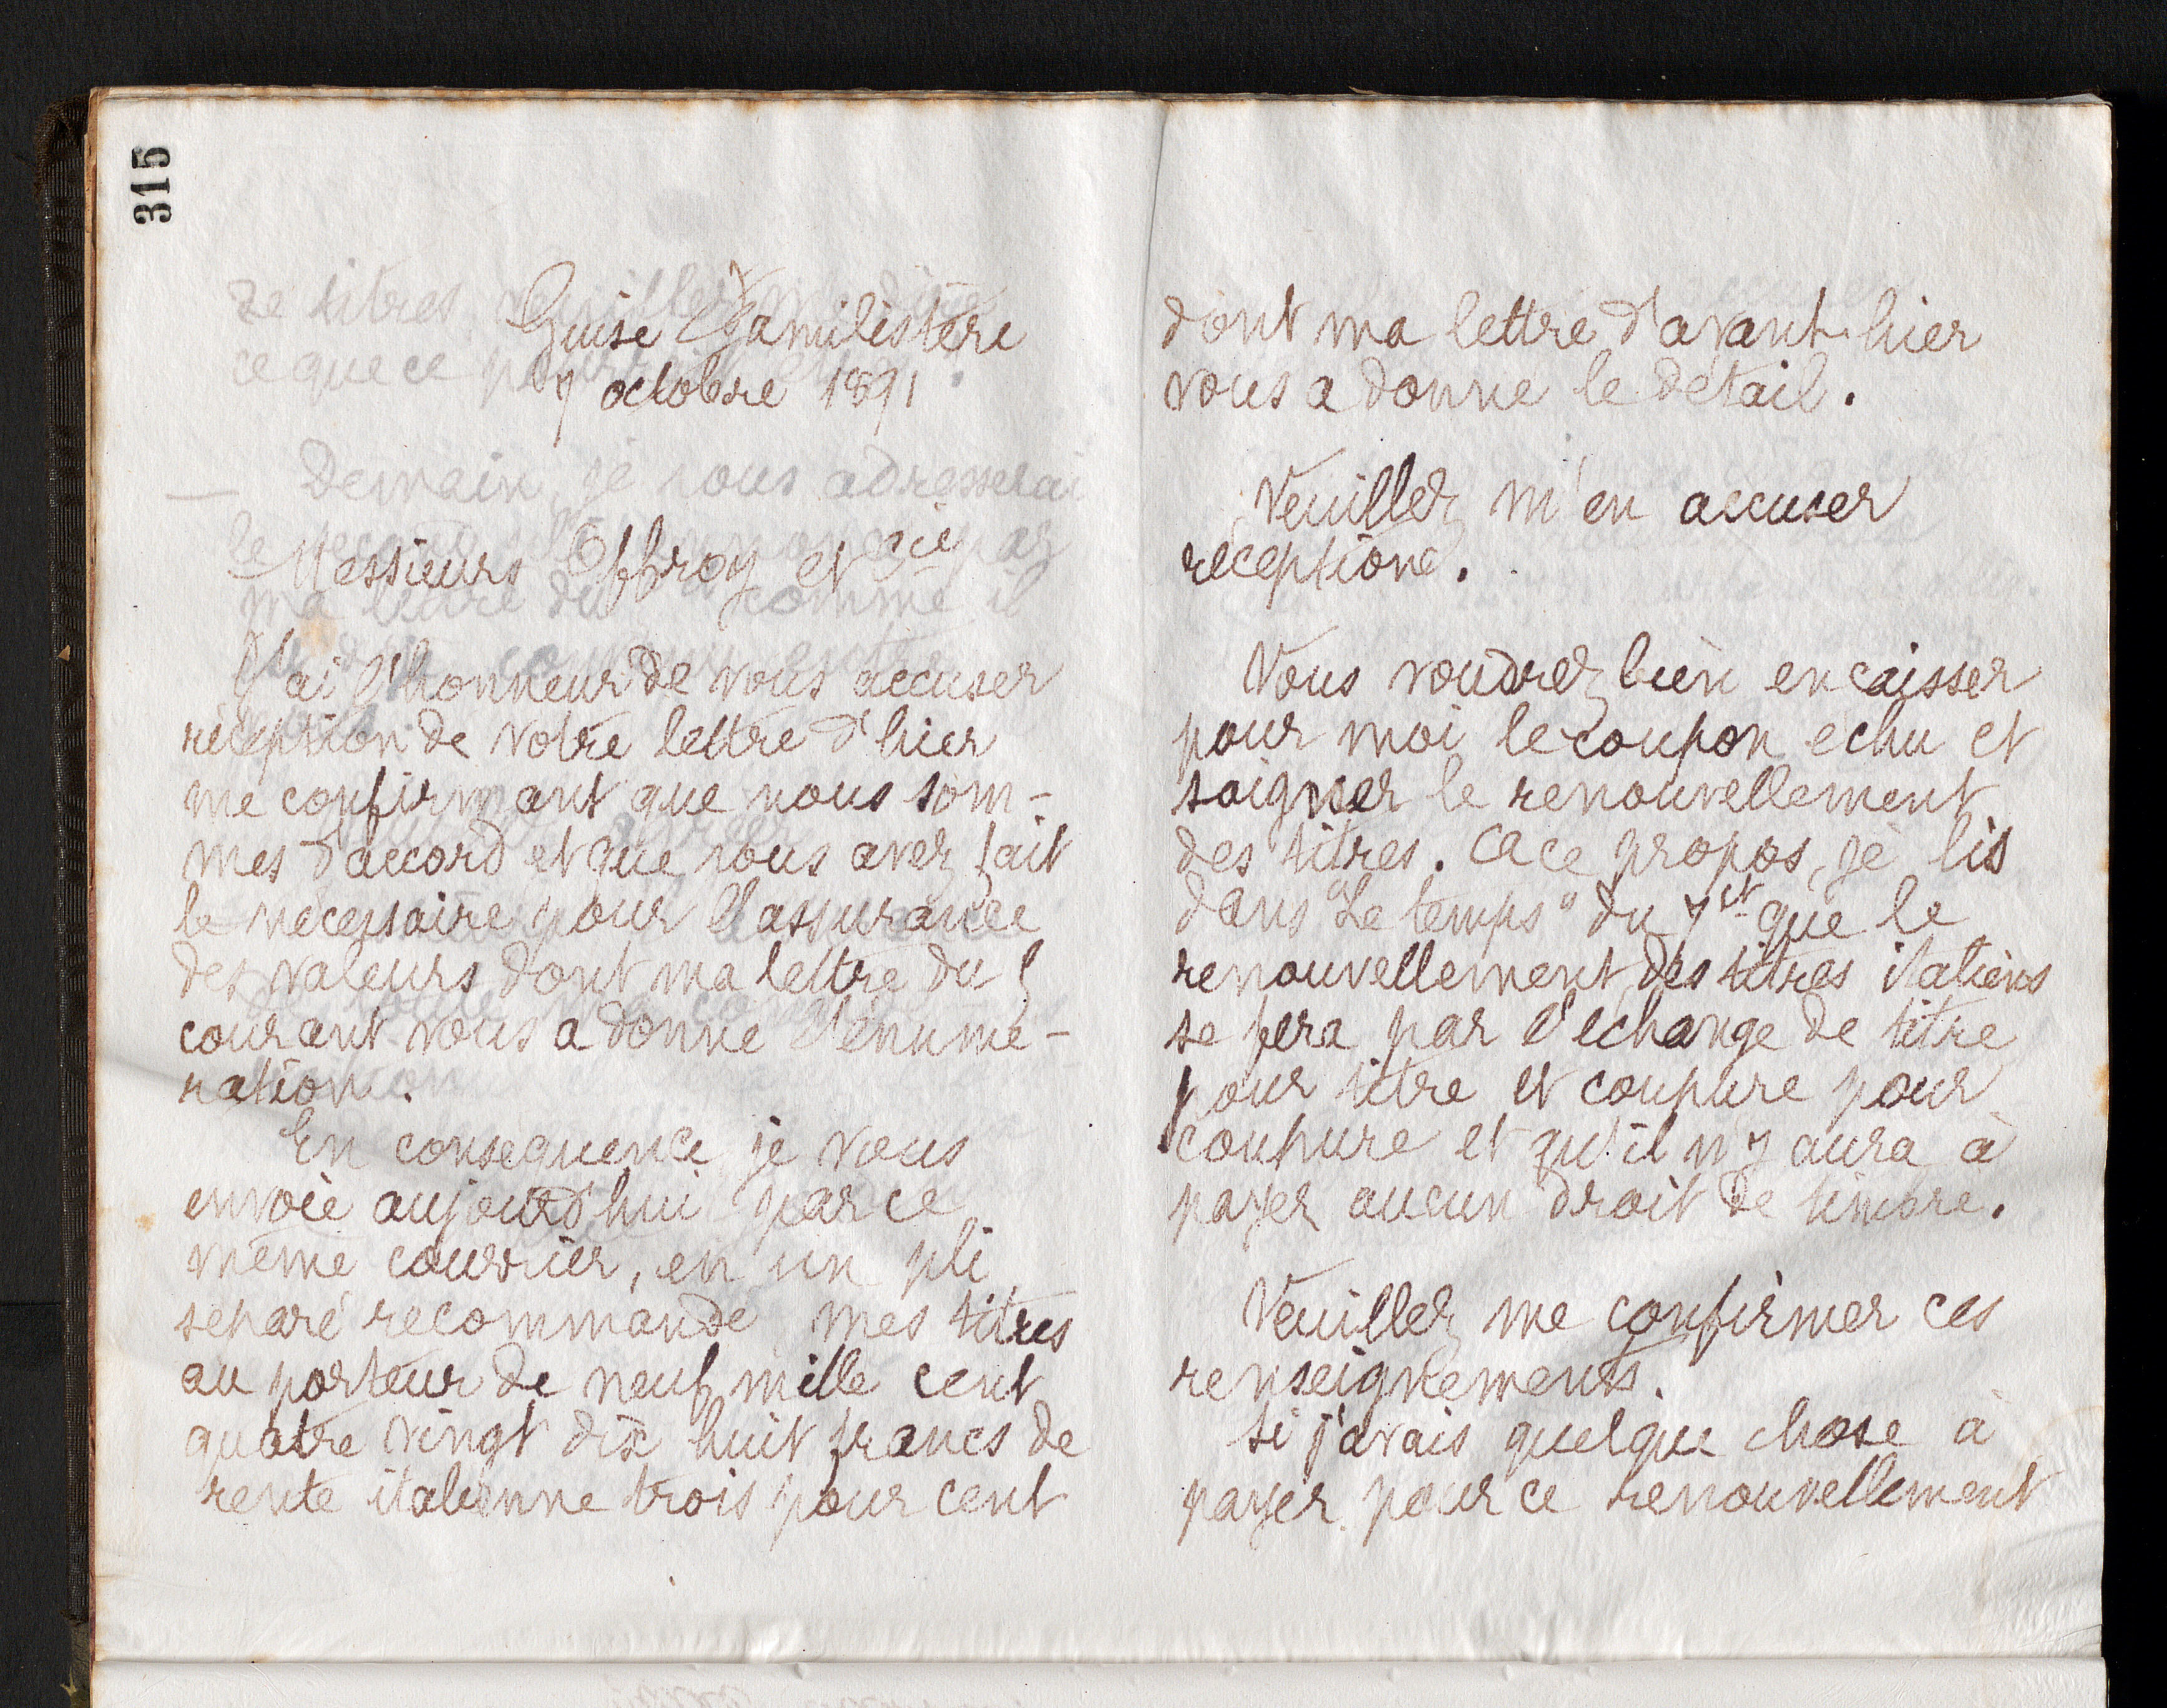 315
Guise Familistère
7 octobre 1891
Messieurs Offroy et Cie
J'ai l'honneur de vous accuser
réception de votre lettre d'hier
me confirmant que nous som-
mes d'accord et que vous avez fait
le necessaire pour l'assurance
des valeurs dont ma lettre du 5
courant vous a donne l'enume-
ration.
En consequence je vous
envoie aujourd'hui par ce
même courrier, en un pli
separé recommandé mes titres
au porteur de neuf mille cent
quatre vingt dix huit francs de
rente italienne trois pour cent
dont ma lettre d'avant-hier
vous a donne le détail.
Veuillez m'en accuser
réception.
Vous voudrez bien encaisser
pour moi le coupon echu et
soigner le renouvellement
des titres. A ce propos, je lis
dans "Le temps" du 7 ct que le
renouvellement des titres italiens
se fera par l'echange de titre
pour titre et coupure pour
coupure et qu'il n'y aura à
payer aucun droit de timbre.
Veuillez me confirmer ces
renseignements.
Si j'avais quelque chose à
payer pour ce renouvellement